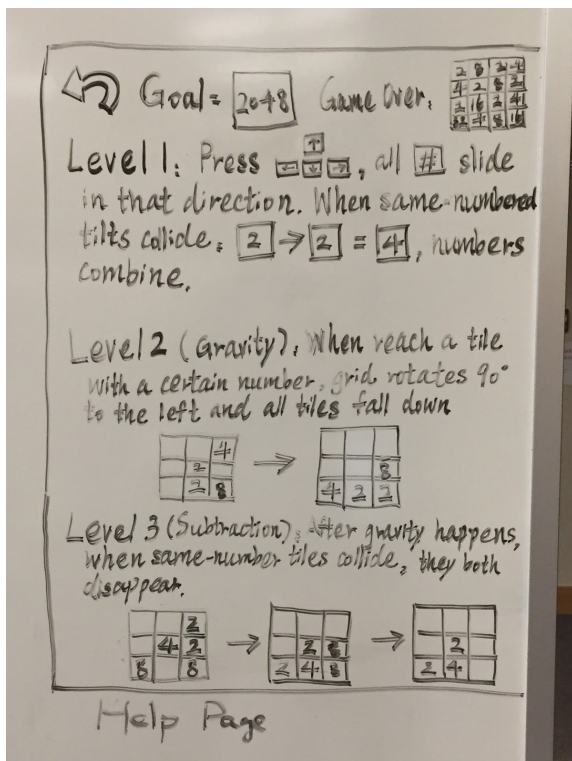 Goal = 2048 Game Over:
2 8 2 4
4 2 8 2
2 16 2 4
32 4 8 16
Level 1: Press ↑ ← ↓ →, all # slide
in that direction. When same-numbered
tilts collide, 2 → 2 = 4, numbers
combine.
Level 2 (Gravity): When reach a tile
with a certain number, grid rotates 90°
to the left and all tiles fall down
4
2
2 8
→
8
4 2 2
Level 3 (Subtraction): After gravity happens,
when same-number tiles collide, they both
disappear.
2
4 2
8 8
→
2 8
2 4 8
→
2
2 4
Help Page